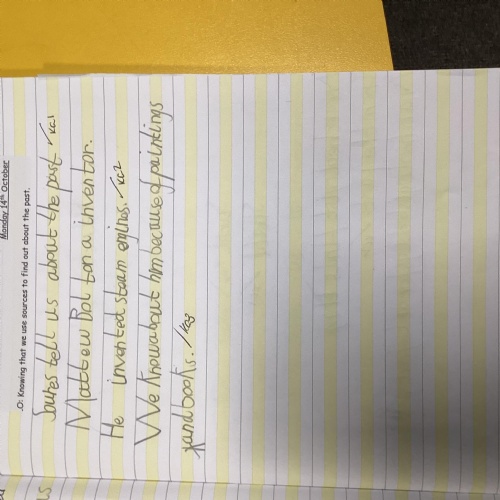 Monday 14th October
.O: Knowing that we use sources to find out about the past.
Soures tell us about the past ✓KC1
Mattew Bol ton a inventor.
He invented steam engines. ✓KC2
We Know about him because of paintings
and books. ✓KC3